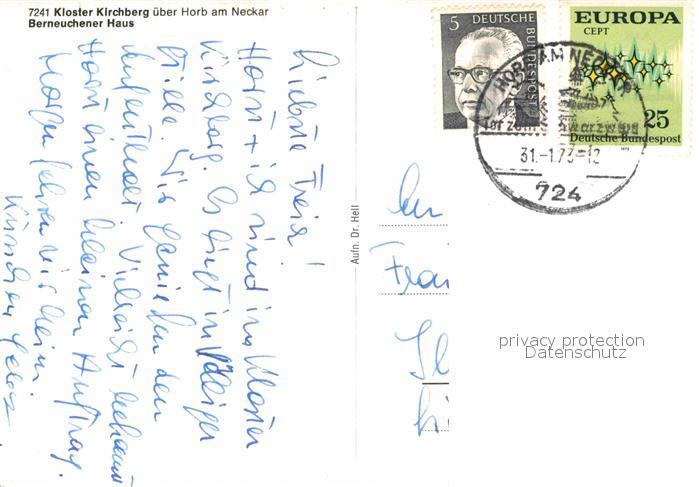 7241 Kloster Kirchberg über Horb am Neckar
Berneuchener Haus
Liebste Trein!
Horst + ich sind im Kloster
Kirchberg. Es liegt in völliger
Stille. Wir genießen den
Aufenthalt. Vielleicht bekommt
Horst einen kleinen Auftrag.
Morgen fahren wir heim
Aufn. Dr. Hell
5
DEUTSCHE BUNDESPOST
EUROPA
CEPT
25
Deutsche Bundespost
1972
HORB AM NECKAR
Tor zum Schwarzwald
31.-1.73-12
724
An
Frau
privacy protection
Datenschutz